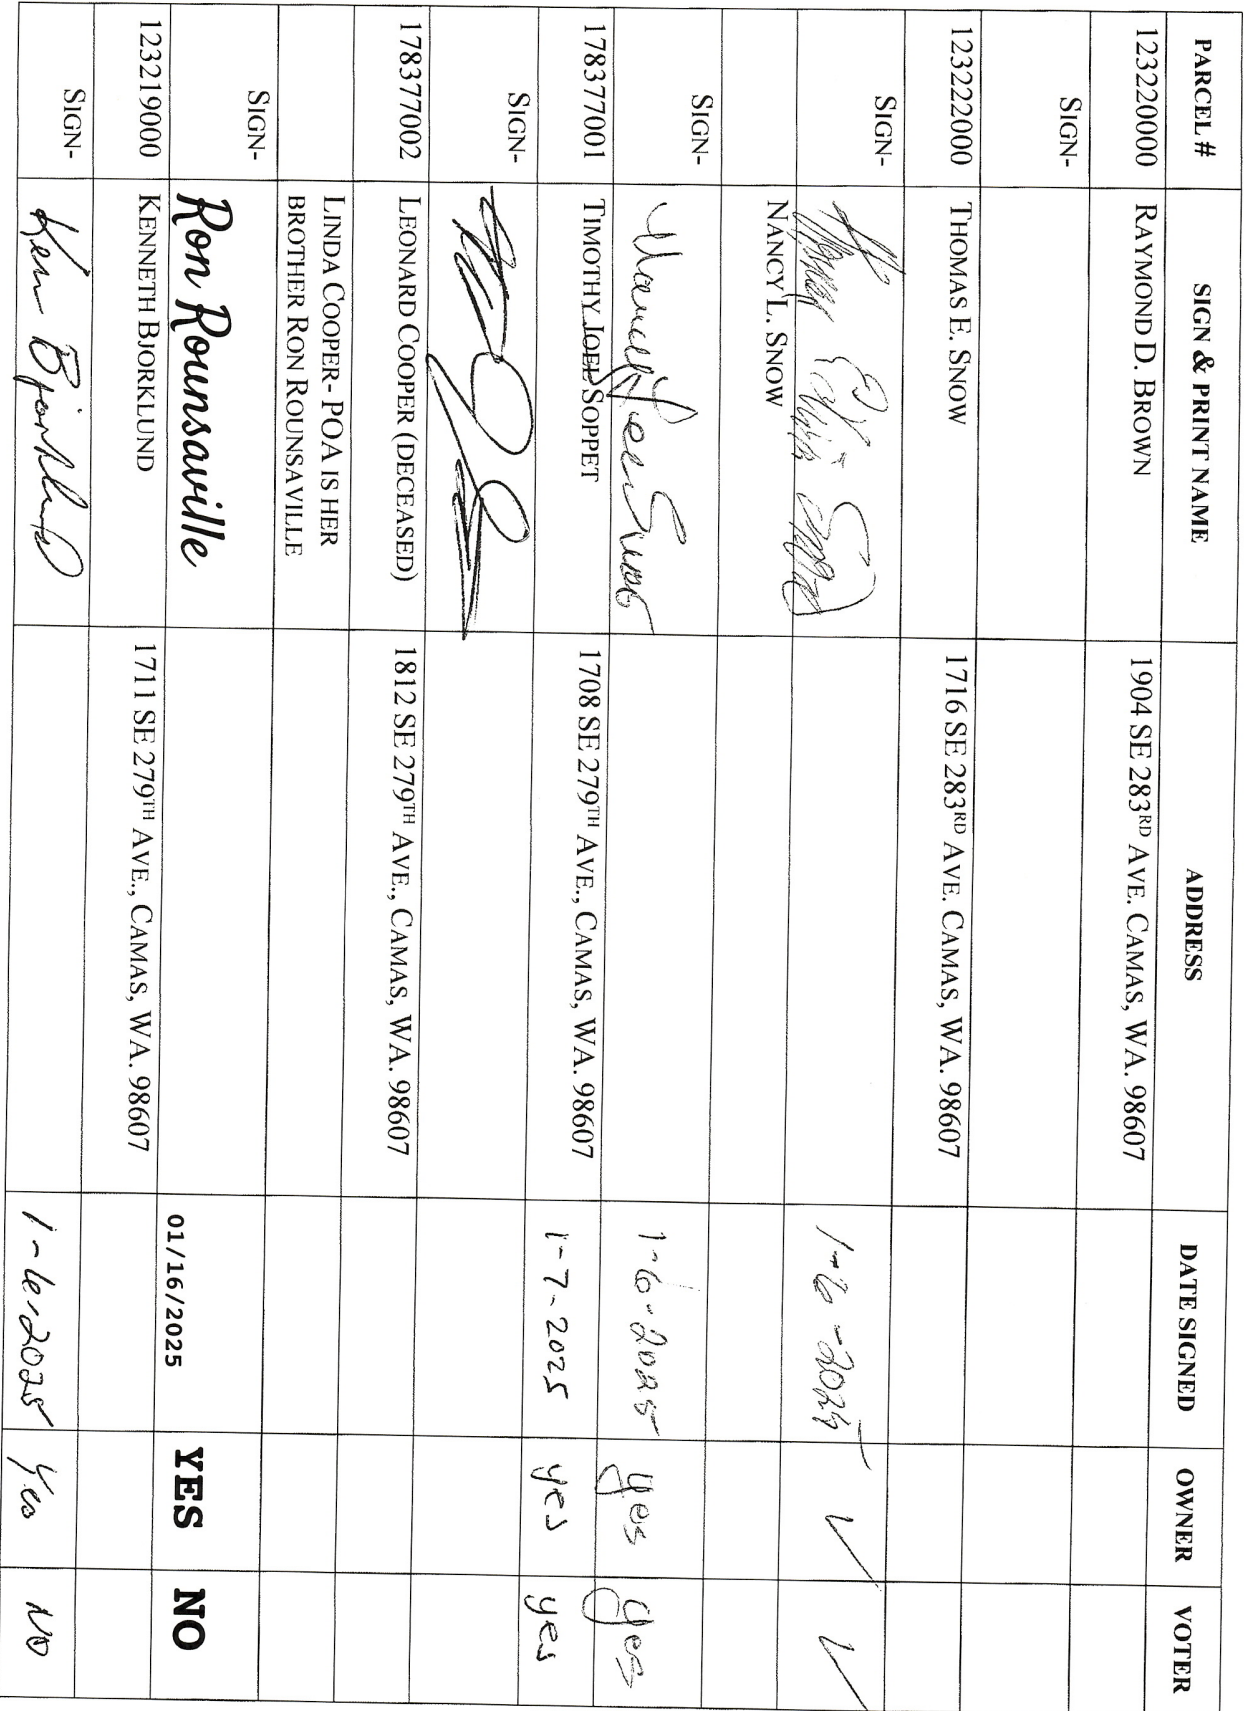 PARCEL # SIGN & PRINT NAME ADDRESS DATE SIGNED OWNER VOTER
123220000 RAYMOND D. BROWN 1904 SE 283RD AVE. CAMAS, WA. 98607
SIGN-
123222000 THOMAS E. SNOW 1716 SE 283RD AVE. CAMAS, WA. 98607
SIGN- 1-6-2025 ✓ ✓
NANCY L. SNOW
SIGN- Nancy Lee Snow 1-6-2025 yes yes
178377001 TIMOTHY JOEL SOPPET 1708 SE 279TH AVE., CAMAS, WA. 98607 1-7-2025 yes yes
SIGN-
178377002 LEONARD COOPER (DECEASED) 1812 SE 279TH AVE., CAMAS, WA. 98607
LINDA COOPER- POA IS HER
BROTHER RON ROUNSAVILLE
SIGN- Ron Rounsaville 01/16/2025 YES NO
123219000 KENNETH BJORKLUND 1711 SE 279TH AVE., CAMAS, WA. 98607
SIGN- Ken Bjorklund 1-6-2025 Yes NO